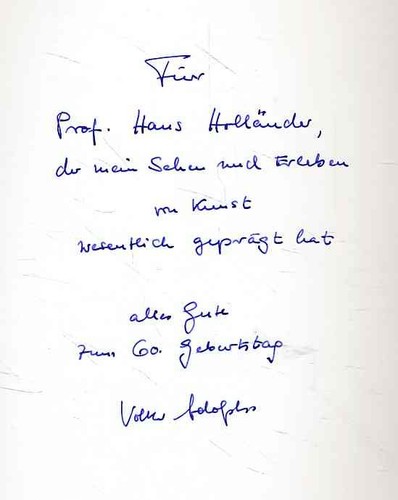 Für
Prof. Hans Holländer,
der mein Sehen und Erleben
von Kunst
wesentlich geprägt hat
alles Gute
zum 60. Geburtstag
Volker Adolphs